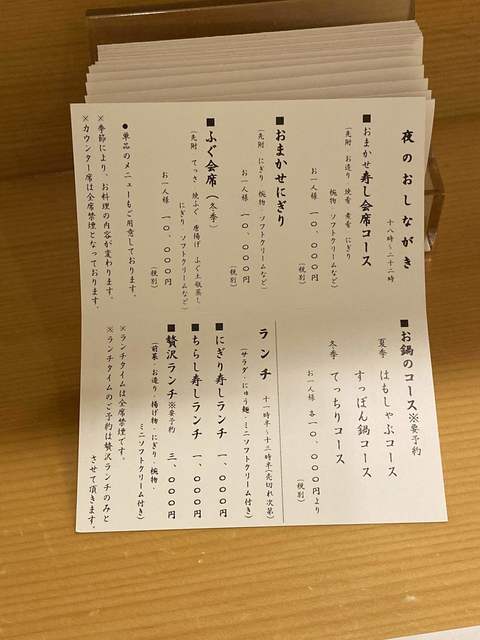 夜のおしながき
十八時〜二十二時
■おまかせ寿し会席コース
(先附 お造り 焼肴 煮肴 にぎり
椀物 ソフトクリームなど)
お一人様 一〇、〇〇〇円
(税別)
■おまかせにぎり
(先附 にぎり 椀物 ソフトクリームなど)
お一人様 一〇、〇〇〇円
(税別)
■ふぐ会席(冬季)
(先附 てっさ 焼ふぐ 唐揚げ ふぐ土瓶蒸し
にぎり、ソフトクリームなど)
お一人様 一〇、〇〇〇円
(税別)
●単品のメニューもご用意しております。
※季節により、お料理の内容が変わります。
※カウンター席は全席禁煙となっております。
■お鍋のコース※要予約
夏季 はもしゃぶコース
すっぽん鍋コース
冬季 てっちりコース
お一人様 各一〇、〇〇〇円より
(税別)
ランチ
十一時半〜十三時半(売切れ次第)
(サラダ・にゅう麺・ミニソフトクリーム付き)
■にぎり寿しランチ 一、〇〇〇円
■ちらし寿しランチ 一、〇〇〇円
■贅沢ランチ※要予約 三、〇〇〇円
(前菜・お造り・揚げ物・にぎり・椀物・
ミニソフトクリーム付き)
※ランチタイムは全席禁煙です。
※ランチタイムのご予約は贅沢ランチのみと
させて頂きます。